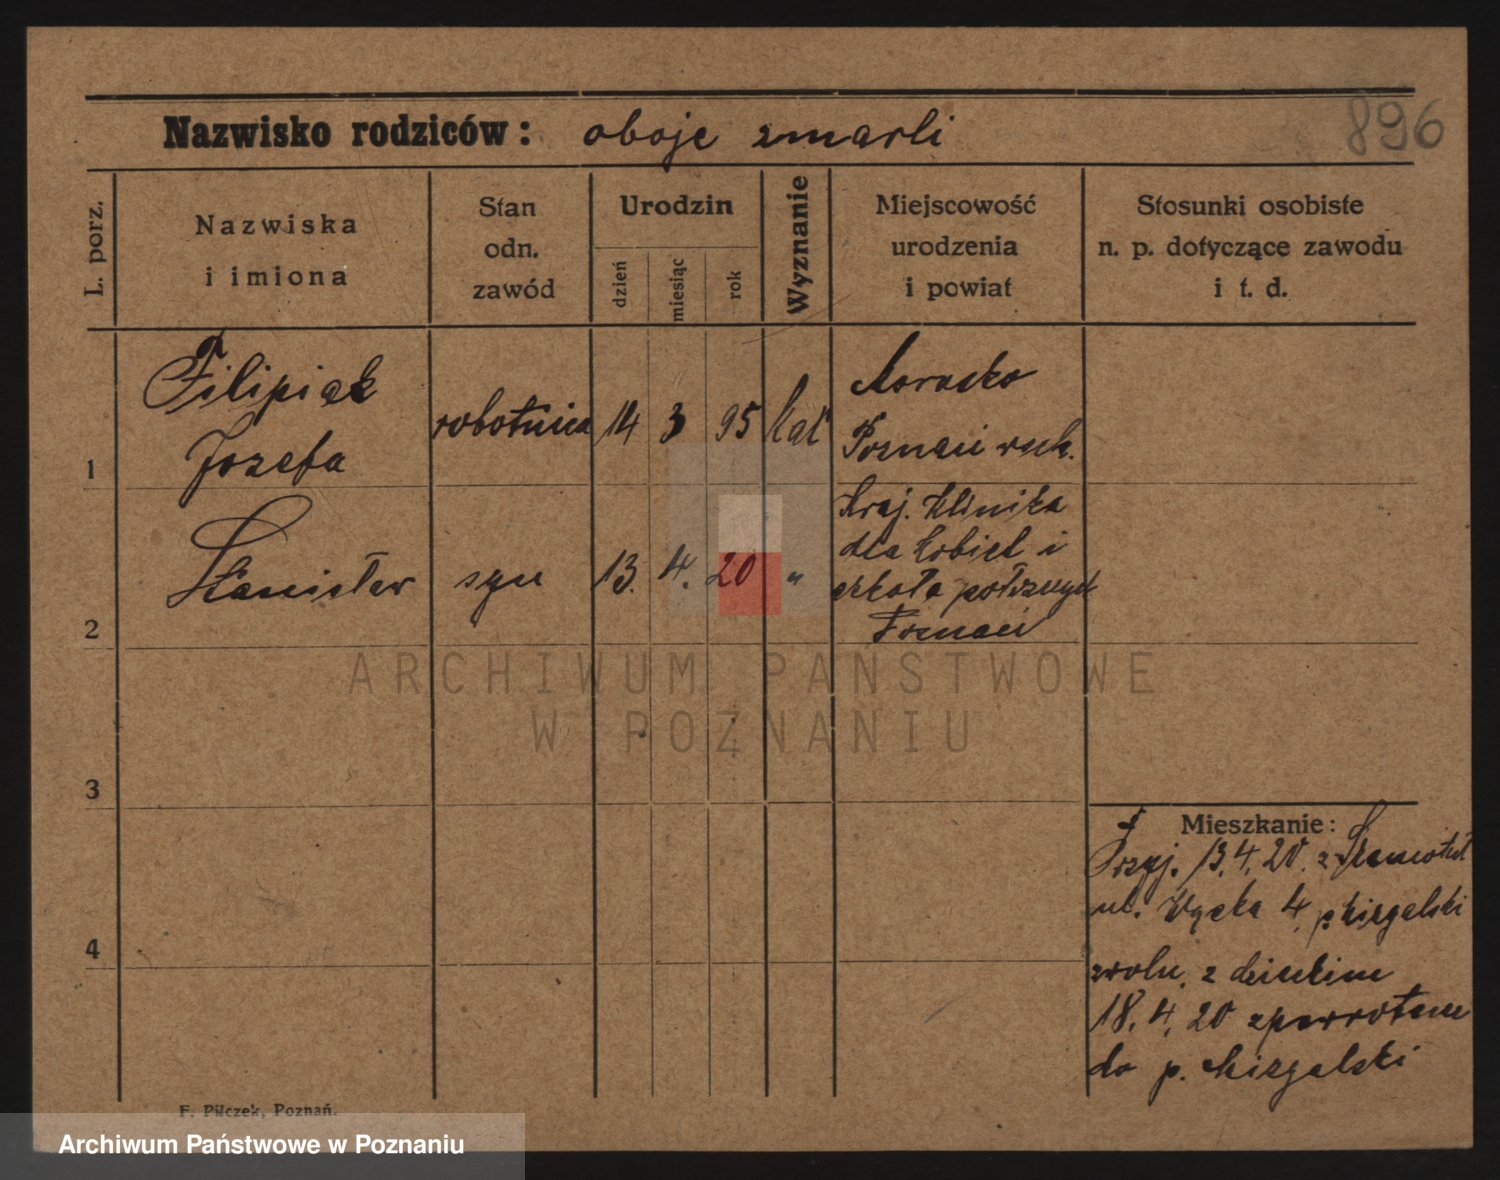 896
Nazwisko rodziców: oboje zmarli
L. porz.
Nazwiska
i imiona
Stan
odn.
zawód
Urodzin
dzień
miesiąc
rok
Wyznanie
Miejscowość
urodzenia
i powiat
Stosunki osobiste
n. p. dotyczące zawodu
i t. d.
1
Filipiak
Józefa
robotnica
14 3 95
kat
Morasko
Poznań wsch.
2
Stanisław
syn
13. 4. 20
"
Kraj. Klinika
dla kobiet i
szkoła położnych
Poznań
3
4
Mieszkanie:
Przyj. 13.4.20. z
ul. 4 p.
zwoln. z dzieckiem
18.4.20 z powrotem
do p.
F. Pilczek, Poznań.
ARCHIWUM PAŃSTWOWE
W POZNANIU
Archiwum Państwowe w Poznaniu